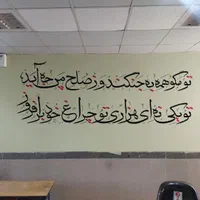 تو مگو همه به جنگند و ز صلح من چه آید
تو یکی نه‌ای هزاری تو چراغ خود برافروز